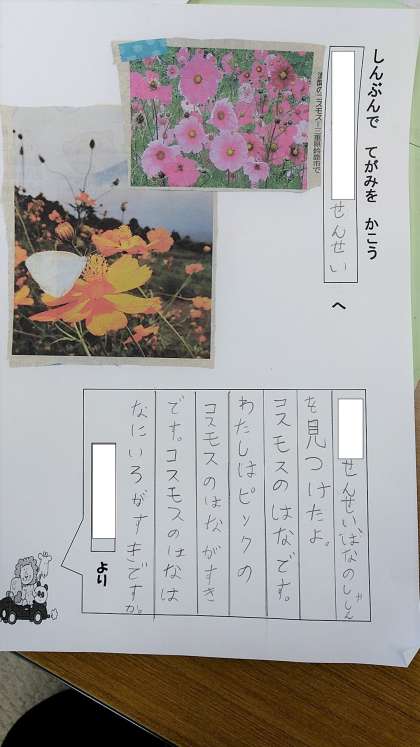 しんぶんで てがみを かこう
せんせい
へ
満開のコスモス=三重県鈴鹿市で
せんせい、はなのしゃしん
を見つけたよ。
コスモスのはなです。
わたしはピンクの
コスモスのはながすき
です。コスモスのはなは
なにいろがすきですか。
より